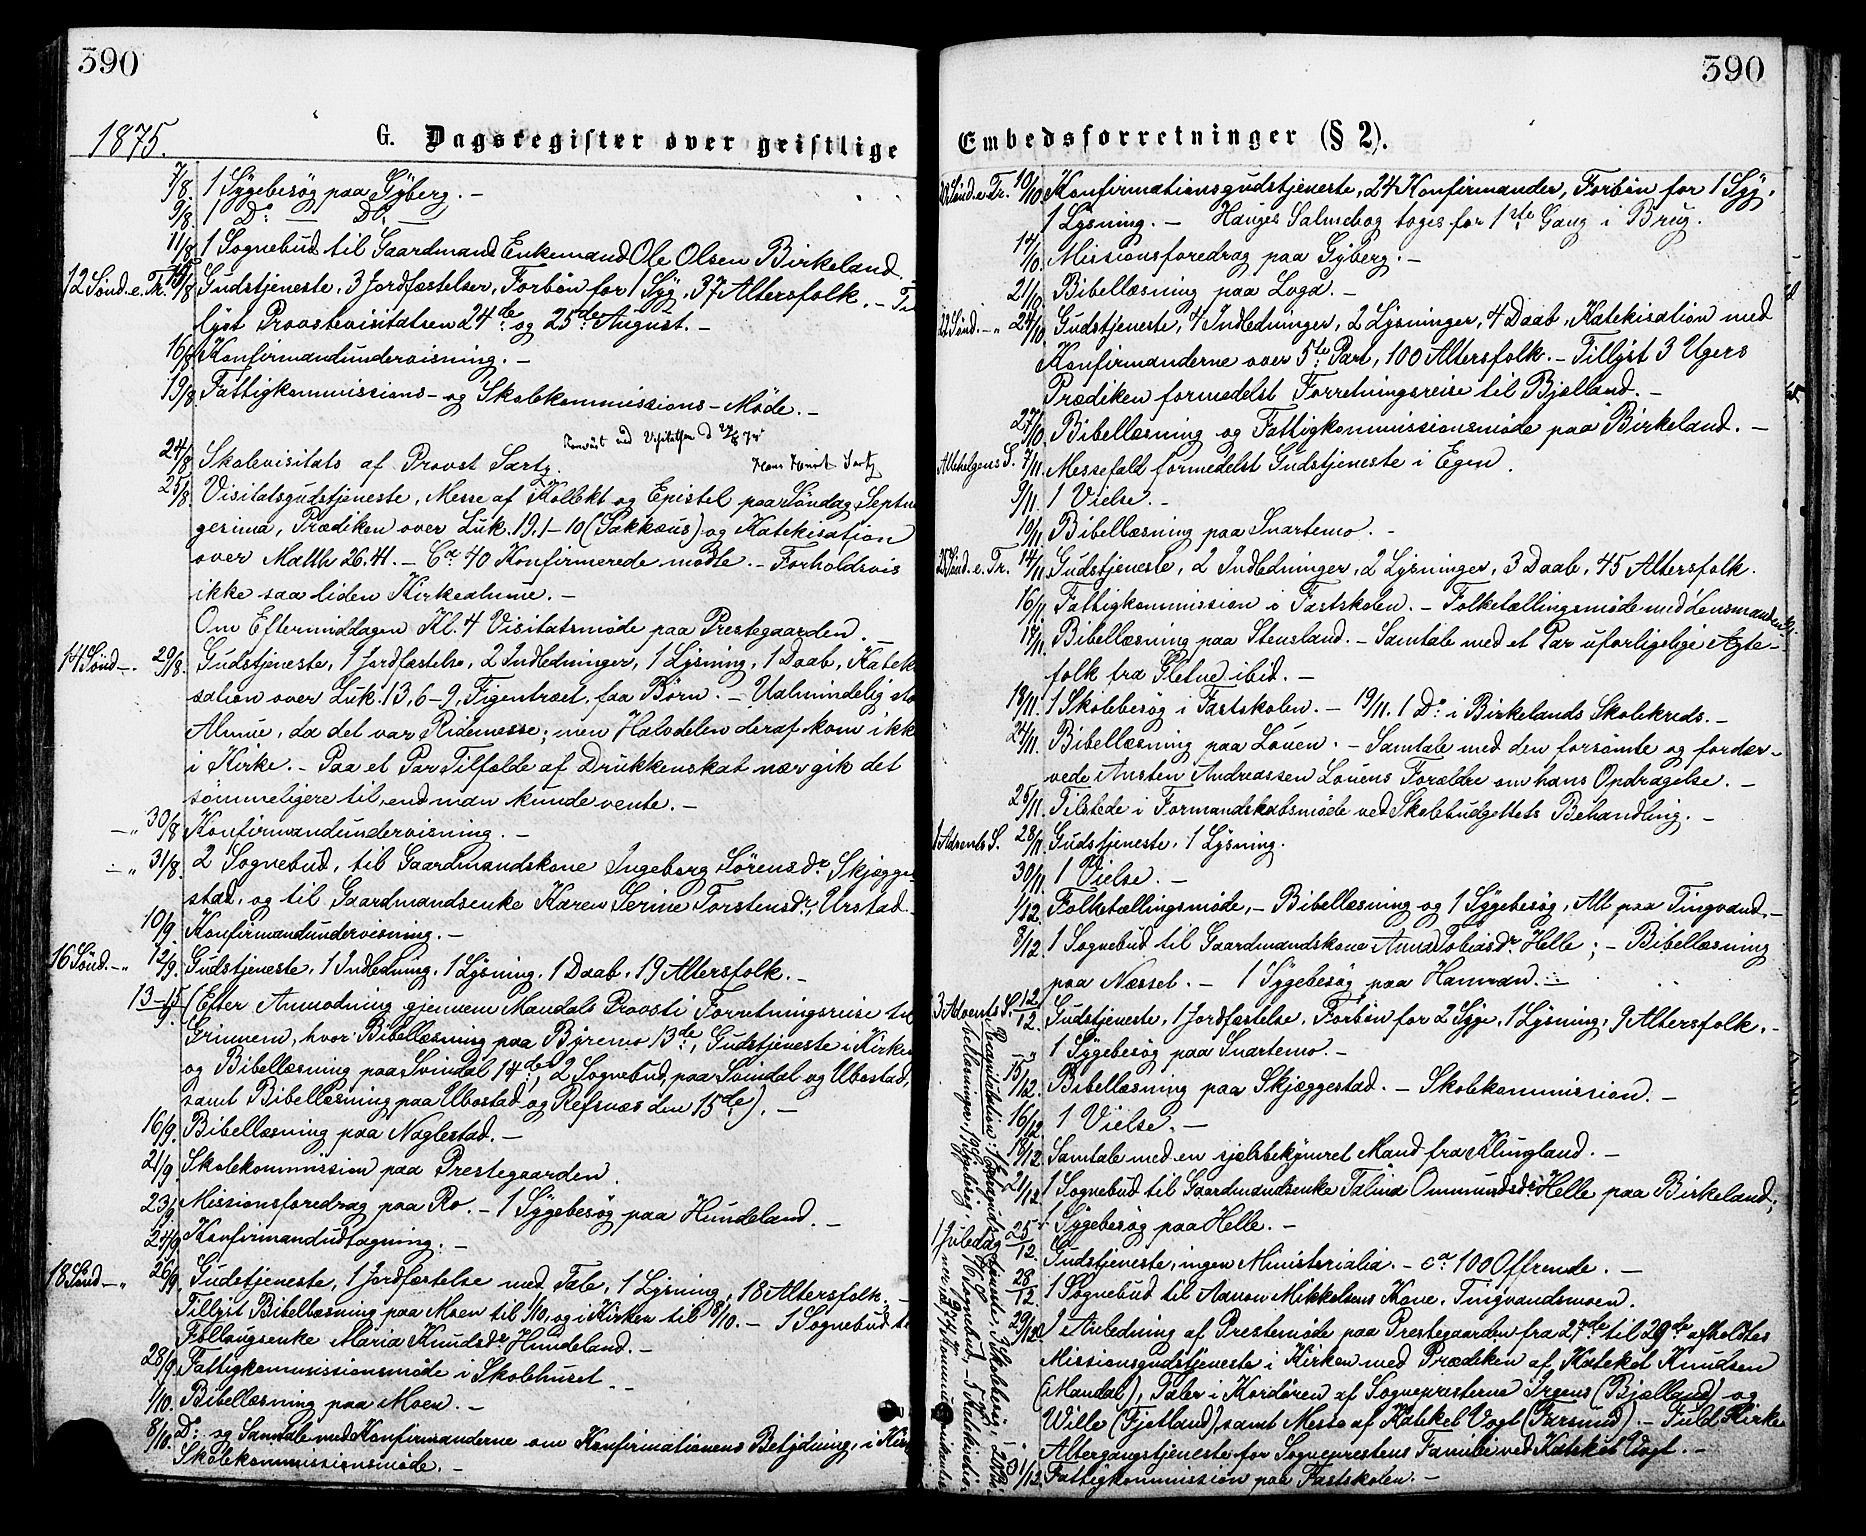 390
1875.
G. Dagsregister over geistlige
7/8. 1 Sygebesøg paa Gyberg. –
9/8. 1 Do. — Do. —
11/8. 1 Sognebud til Gaardmand Enkemand Ole Olsen Birkeland.
12 Sönd. e. Tr. 15/8 Gudstjeneste, 3 Jordfæstelser, Forbön for 1 Syg, 37 Altersfolk. – Til
lyst Provstevisitatsen 24de og 25de August. –
16/8 Konfirmandundervisning. –
19/8. Fattigkommissions- og Skolekommissions-Möde. –
ved Visitatsen d
24/8 Skolevisitats af Provst Sartz.
Sartz
25/8. Visitatsgudstjeneste, Messe af Kollekt og Epistel paa Söndag Septua
gesima, Prædiken over Luk. 19. 1–10 (Sakkæus) og Katekisation
over Matth 26.41. – Ca 40 Konfirmerede mödte. – Forholdsvis
ikke saa liden Kirkealmue. –
Om Eftermiddagen Kl. 4 Visitatsmöde paa Prestegaarden. –
14 Sönd –. 29/8. Gudstjeneste, 1 Jordfæstelse, 2 Indledninger, 1 Lysning, 1 Daab, Kateki
sation over Luk. 13, 6–9, Figentræet, faa Börn. – Ualmindelig stor
Almue, da det var Ridemesse; men Halvdelen deraf kom ikke
i Kirke. – Paa et Par Tilfælde af Drukkenskab nær gik det
sömmeligere til, end man kunde vente. –
– „ 30/8 Konfirmandundervisning. –
– „ 31/8. 2 Sognebud, til Gaardmandskone Ingeborg Sörensdr. Skjægge-
stad, og til Gaardmandsenke Karen Serine Torstensdr., Urstad.
10/9. Konfirmandundervisning. –
16 Sönd. – „ 12/9. Gudstjeneste, 1 Indledning, 1 Lysning, 1 Daab, 19 Altersfolk. –
13–15/9. (Efter Anmodning gjennem Mandals Provsti Forretningsreise til
Grinnem, hvor Bibellæsning paa Byremo 13de, Gudstjeneste i Kirken
og Bibellæsning paa Svindal 14de, 2 Sognebud, paa Svindal og Ubostad,
samt Bibellæsning paa Ubostad og Refsnæs den 15de). –
16/9. Bibellæsning paa Naglestad. –
21/9. Skolekommission paa Prestegaarden.
23/9 Missionsforedrag paa Ro. – 1 Sygebesøg paa Hundeland. –
24/9 Konfirmandudtagning. –
18 Sönd – „ 26/9. Gudstjeneste, 1 Jordfæstelse med Tale, 1 Lysning, 18 Altersfolk. –
Tillyst Bibellæsning paa Moen til 1/10, og i Kirken til 8/10. – 1 Sognebud til
Föllaugsenke Maria Knudsdr. Hundeland. –
28/9. Fattigkommissionsmöde i Skolehuset. –
1/10. Bibellæsning paa Moen. –
8/10. Do. og Samtale med Konfirmanderne om Konfirmationens Betydning, i Kirken
Skolekommissionsmöde. –
390
Embedsforretninger (§ 2).
Sönd. e. Tr. 10/10 Konfirmationsgudstjeneste, 24 Konfirmander, Forbön for 1 Syg,
1 Lysning. – Hauges Salmebog toges for 1ste Gang i Brug.
14/10. Missionsforedrag paa Gyberg. –
21/10 Bibellæsning paa Loga. –
22 Sönd. – „ 24/10. Gudstjeneste, 4 Indledninger, 2 Lysninger, 4 Daab, Katekisation med
Konfirmanderne over 5te Part, 100 Altersfolk. – Tillyst 3 Ugers
Prædiken formedelst Forretningsreise til Bjelland. –
27/10. Bibellæsning og Fattigkommissionsmöde paa Birkeland. –
Allehelgens S. 7/11. Messefald formedelst Gudstjeneste i Egen.
9/11. 1 Vielse. –
10/11. Bibellæsning paa Snartemo. –
25 Sönd. e. Tr. 14/11. Gudstjeneste, 2 Indledninger, 2 Lysninger, 3 Daab, 45 Altersfolk.
16/11. Fattigkommission i Fastskolen. – Folketællingsmöde med Lensmanden
17/11. Bibellæsning paa Stensland. – Samtale med et Par uforligelige Ægte-
folk fra Gletne ibid. –
18/11. 1 Skolebesøg i Fastskolen. – 19/11. 1 Do. i Birkelands Skolekreds. –
24/11. Bibellæsning paa Löuen. – Samtale med den forsömte og fordær-
vede Ansten Andreassen Löuens Forældre om hans Opdragelse. –
25/11. Tilstede i Formandskabsmöde ved Skolebudgettets Behandling. –
1 Advents S. 28/11 Gudstjeneste, 1 Lysning.
30/11. 1 Vielse. –
1/12. Folketællingsmöde, – Bibellæsning og 1 Sygebesøg, Alt paa Tingvand. –
8/12. 1 Sognebud til Gaardmandskone Anna Tobiasdr. Helle; – Bibellæsning
paa Næsset. – 1 Sygebesøg paa Hamran. –
3 Advents S. 12/12. Gudstjeneste, 1 Jordfæstelse, Forbön for 2 Syge, 1 Lysning, 9 Altersfolk. –
– „ 1 Sygebesøg paa Snartemo. –
15/12. Bibellæsning paa Skjæggestad. – Skolekommission. –
16/12. 1 Vielse. –
18/12. Samtale med en sjælsbekymret Mand fra Klungland. –
21/12 1 Sognebud til Gaardmandsenke Talina Ommundsdr. Helle paa Birkeland;
1 Sygebesøg paa Helle. –
1 Juledag 25/12 Gudstjeneste, ingen Ministerialia. – ca 100 Offrende. –
28/12. 1 Sognebud til Aanon Mikkelsens Kone, Tingvandsmoen.
29/12. I Anledning af Prestemöde paa Prestegaarden fra 27de til 29de afholdtes
Missionsgudstjeneste i Kirken med Prædiken af Kateket Knudsen
(Mandal), Taler i Kordören af Sognepresterne Irgens (Bjelland) og
Wille (Fjotland), samt Messe af Kateket Vogt (Farsund). – Fuld Kirke
Altergangstjeneste for Sogneprestens Familie ved Kateket Vogt. –
31/12. Fattigkommission paa Fastskolen. –